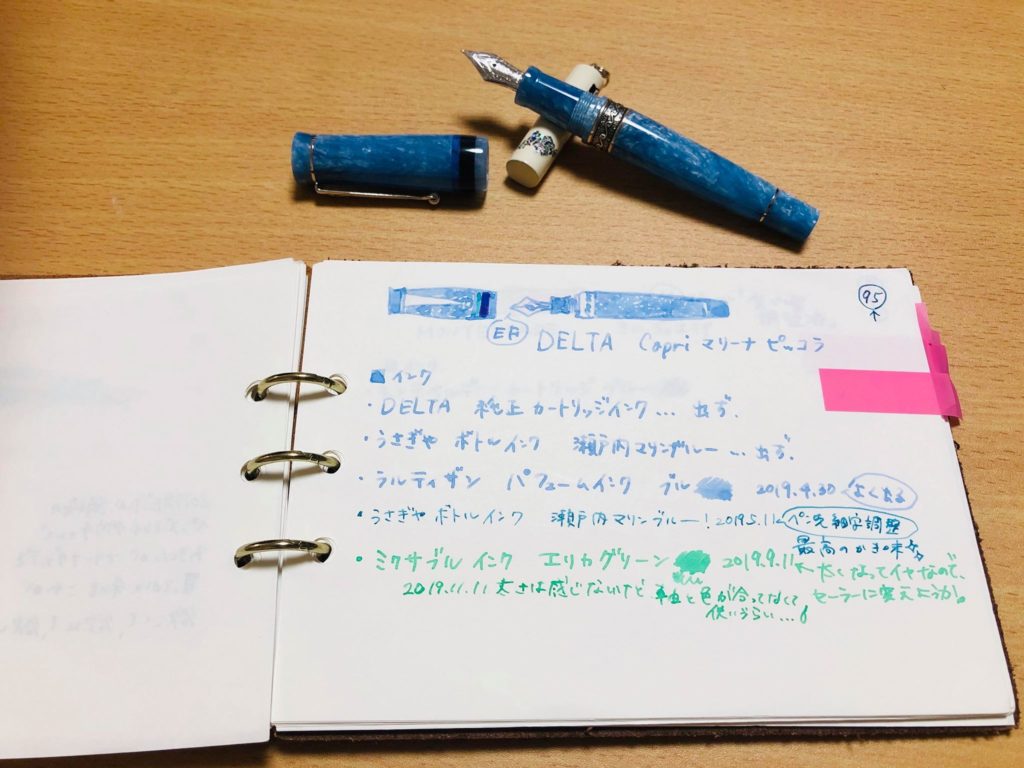 95
↑
EF DELTA Capri マリーナ ピッコラ
■インク
・DELTA 純正 カートリッジインク… 出ず.
・うさぎや ボトルインク 瀬戸内マリンブルー … 出ず.
・ラルティザン パフュームインク ブルー 2019.4.30 よく出る
・うさぎや ボトルインク 瀬戸内マリンブルー! 2019.5.12 ペン先細字調整
最高のかき味
・ミクサブル インク エリカグリーン 2019.9.11 太くなってイヤなので、
セーラーに変えようか。
2019.11.11 太さは感じないけど 軸と色が合ってなくて
使いづらい…